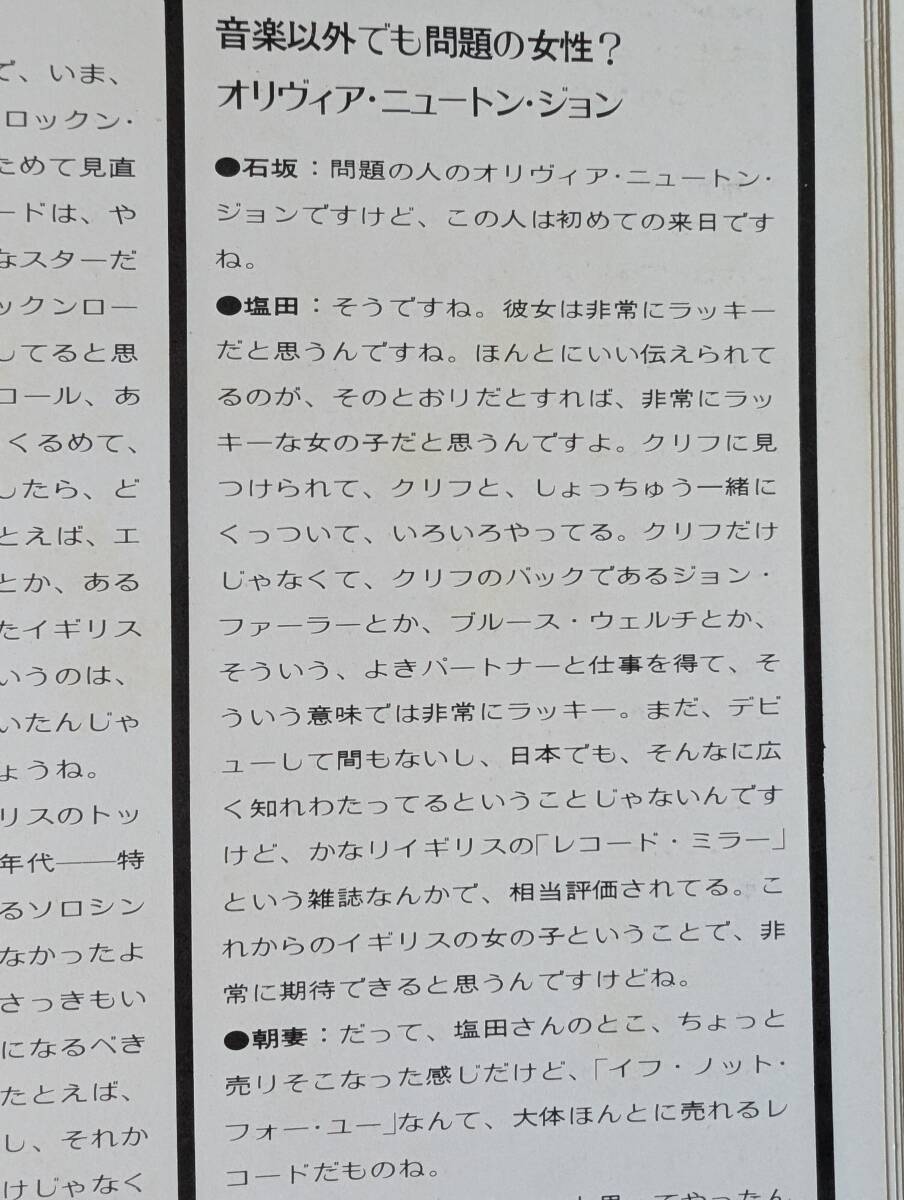 で、いま、
ロックン・
ためて見直
ードは、や
なスターだ
ックンロー
してると思
コール、あ
くるめて、
したら、ど
とえば、エ
とか、ある
たイギリス
いうのは、
いたんじゃ
ょうね。
リスのトッ
年代――特
るソロシン
なかったよ
さっきもい
になるべき
たとえば、
し、それか
けじゃなく
音楽以外でも問題の女性？
オリヴィア・ニュートン・ジョン
●石坂：問題の人のオリヴィア・ニュートン・
ジョンですけど、この人は初めての来日です
ね。
●塩田：そうですね。彼女は非常にラッキー
だと思うんですね。ほんとにいい伝えられて
るのが、そのとおりだとすれば、非常にラッ
キーな女の子だと思うんですよ。クリフに見
つけられて、クリフと、しょっちゅう一緒に
くっついて、いろいろやってる。クリフだけ
じゃなくて、クリフのバックであるジョン・
ファーラーとか、ブルース・ウェルチとか、
そういう、よきパートナーと仕事を得て、そ
ういう意味では非常にラッキー。まだ、デビ
ューして間もないし、日本でも、そんなに広
く知れわたってるということじゃないんです
けど、かなりイギリスの「レコード・ミラー」
という雑誌なんかで、相当評価されてる。こ
れからのイギリスの女の子ということで、非
常に期待できると思うんですけどね。
●朝妻：だって、塩田さんのとこ、ちょっと
売りそこなった感じだけど、「イフ・ノット・
フォー・ユー」なんて、大体ほんとに売れるレ
コードだものね。
思ってやったん